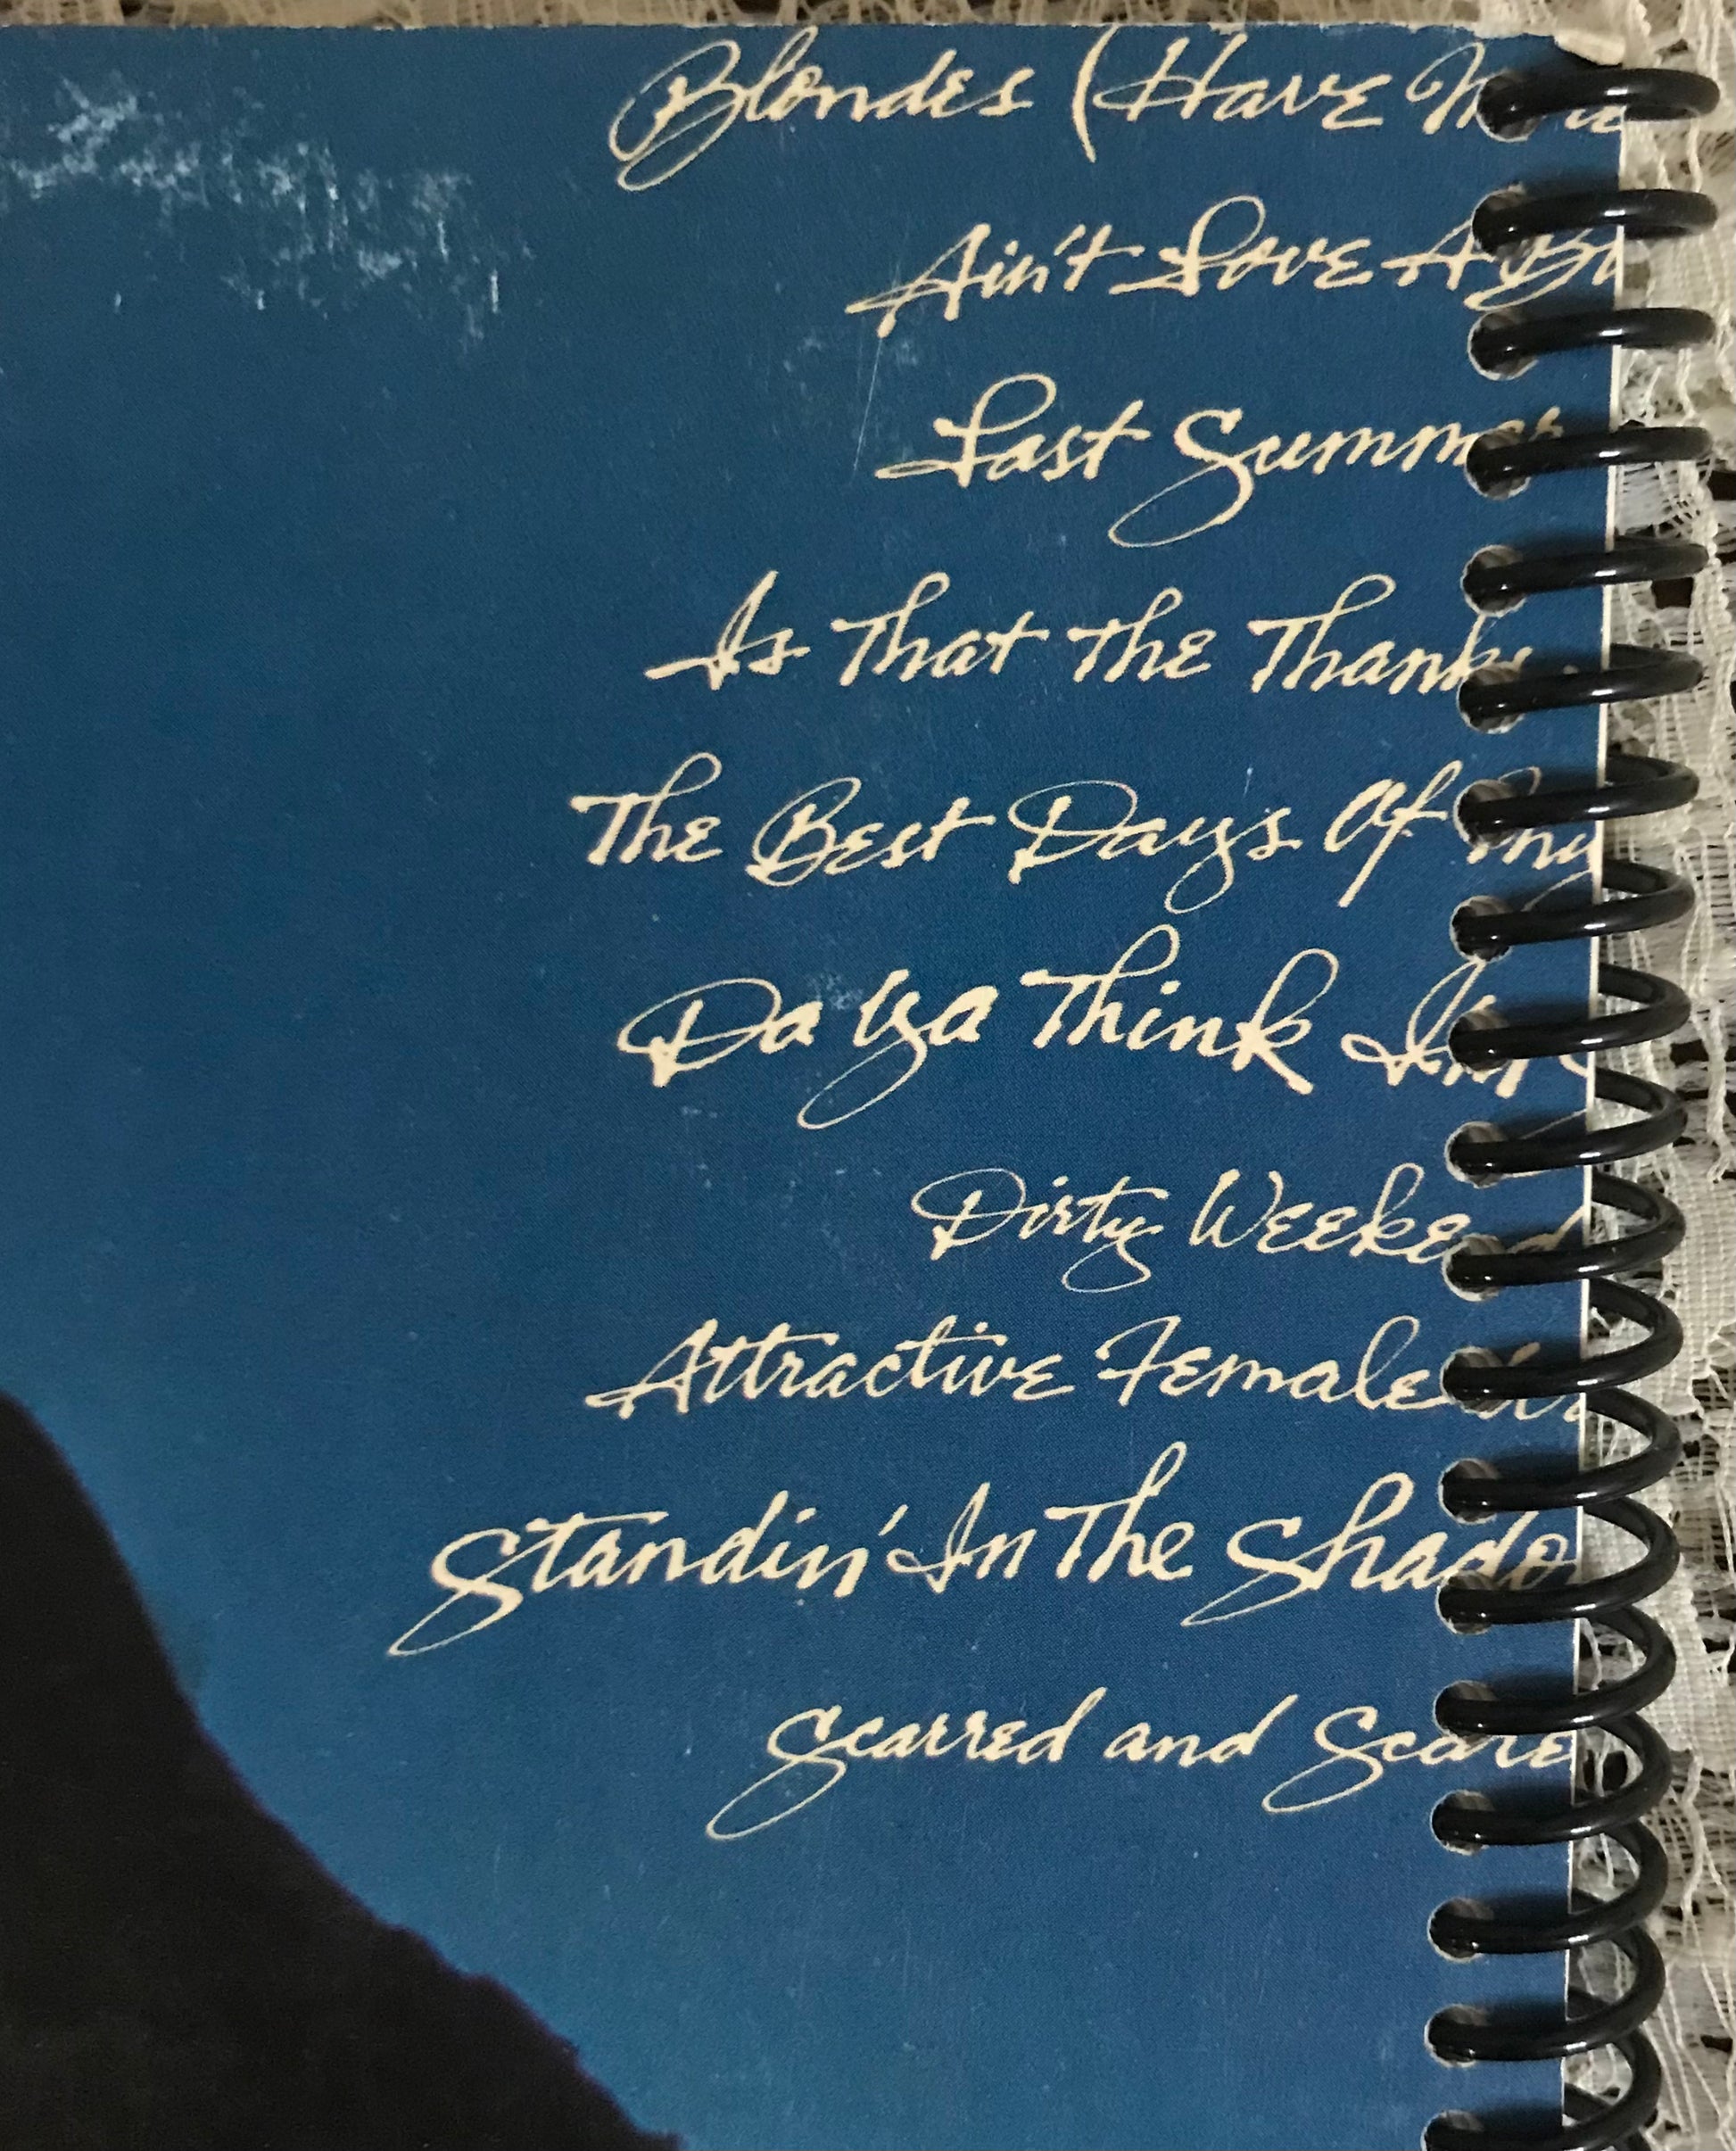 Blondes (Have
Ain't Love A
Last Summer
Is That The Thanks
The Best Days Of My
Da Ya Think I'm
Dirty Weekend
Attractive Female
Standin' In The Shado
Scarred and Scare